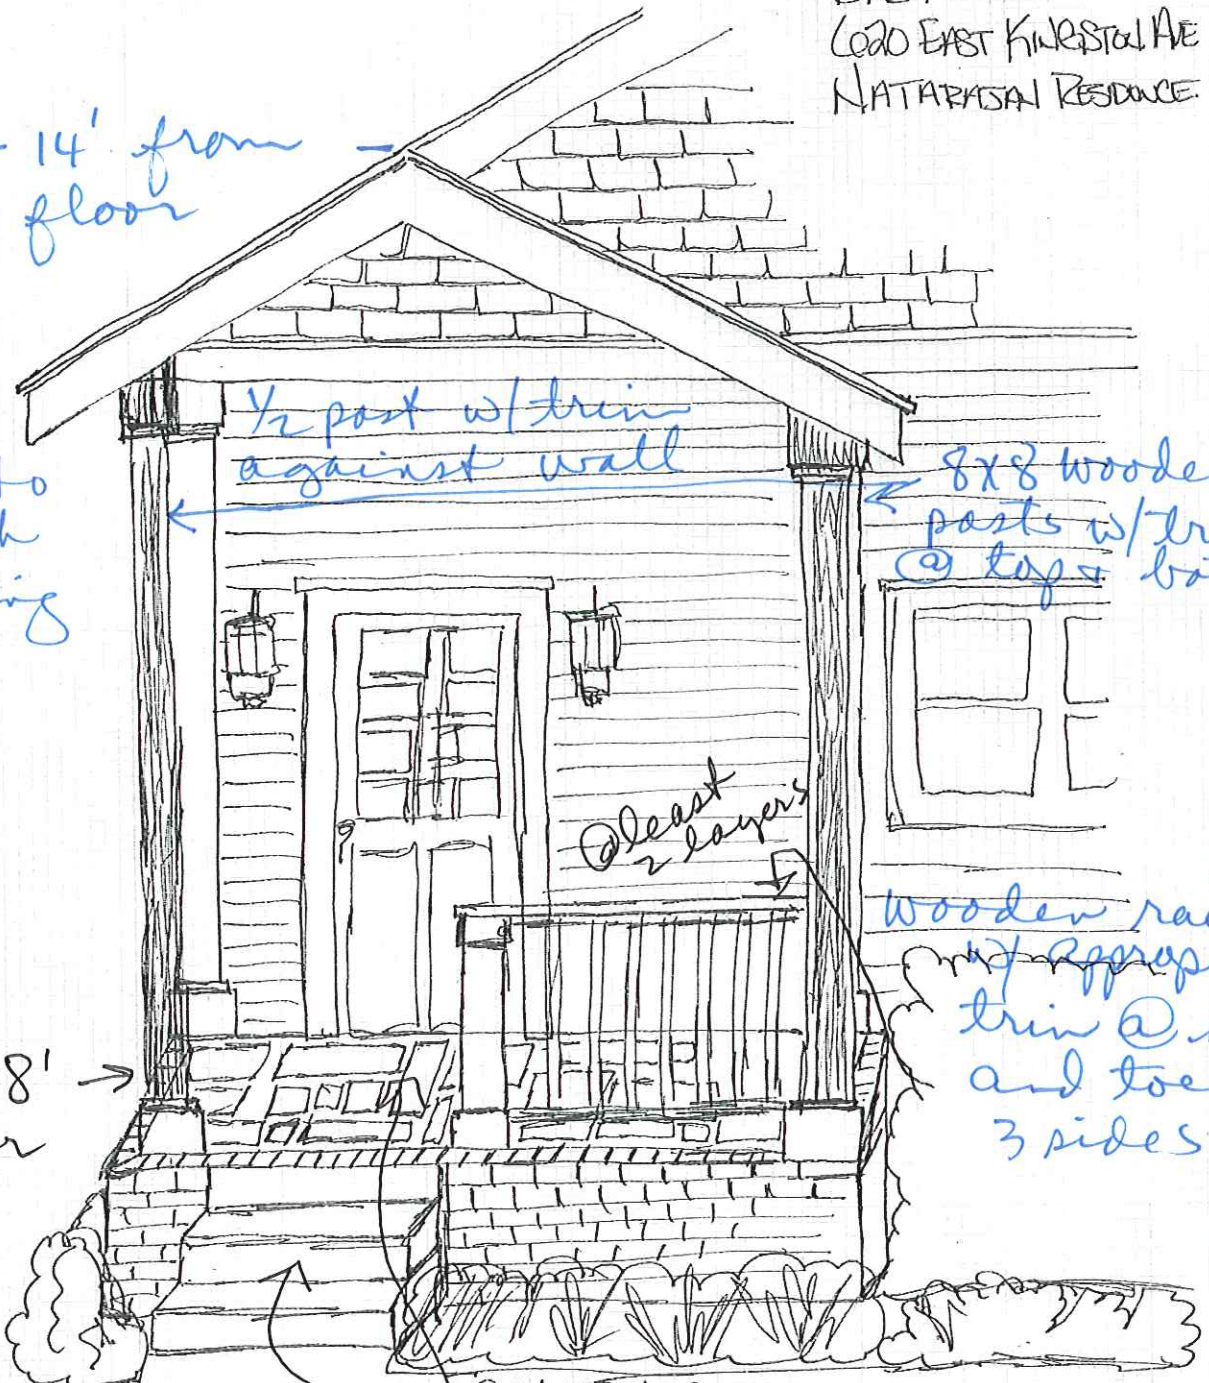 620 EAST KINGSTON AVE
NATARAJAN RESIDENCE
14' from
floor
1/2 post w/ trim
against wall
to
8x8 woode
posts w/ tr
@ top &
ing
@ least
2 layers
wooden ra
w/ approp
trim @
and toe
8'
3 sides